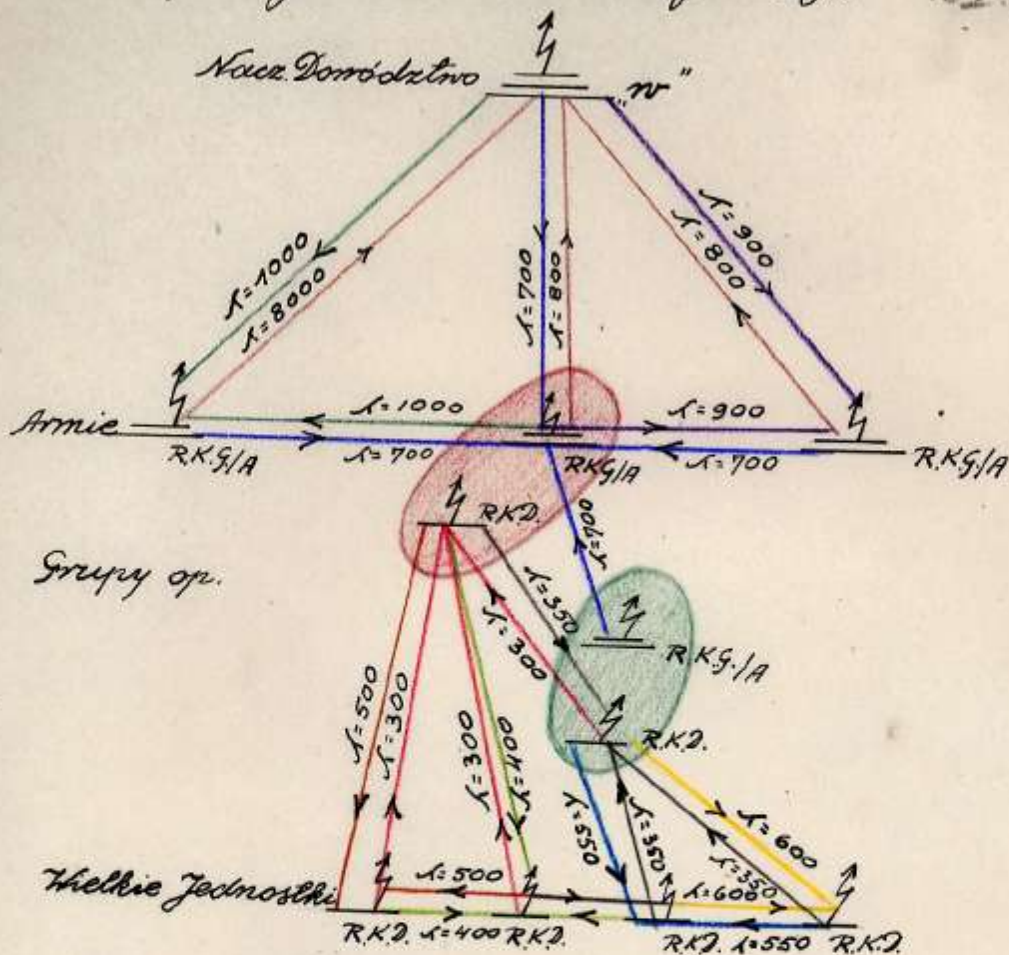 Nacz. Dowództwo
„W"
λ=1000
λ=8000
λ=700
λ=800
λ=900
λ=800
Armie
λ=1000
λ=900
R.K.G/A
λ=700
RKG/A
λ=700
R.K.G/A
R.K.D.
Grupy op.
λ=700
λ=350
λ=300
R.K.G./A
λ=500
λ=300
λ=300
λ=400
R.K.D.
λ=550
λ=350
λ=600
λ=350
Wielkie Jednostki
λ=500
λ=600
R.K.D.
λ=400
R.K.D.
R.K.D.
λ=550
R.K.D.